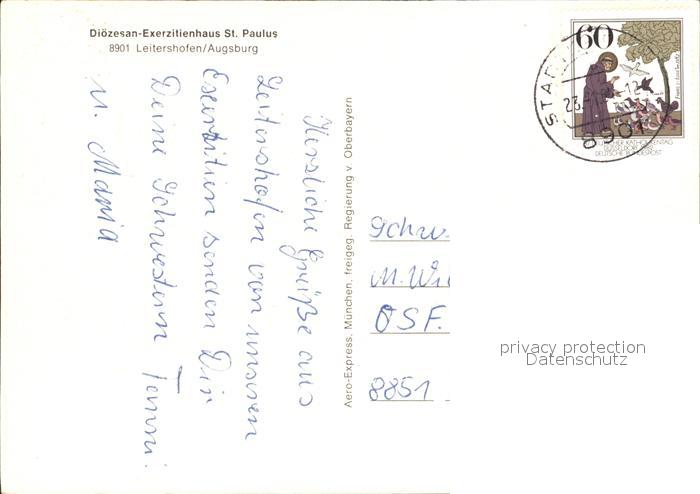 Diözesan-Exerzitienhaus St. Paulus
8901 Leitershofen/Augsburg
Herzliche Grüße aus
Leitershofen von unseren
Exerzitien senden Dir
Deine Schwestern
u. Maria
Aero-Express, München, freigeg. Regierung v. Oberbayern
60
STAD
8901
DEUTSCHE BUNDESPOST
Schw.
M. Wi
OSF.
8851
privacy protection
Datenschutz